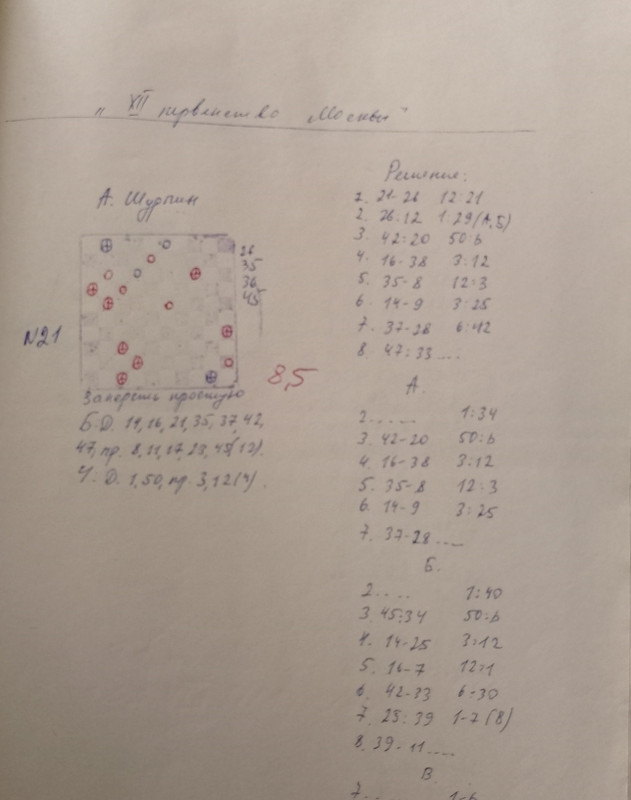 „ XII первенство Москвы"
А. Шурпин
26
35
36
45
№21
8,5
Запереть простую
Б: Д. 14, 16, 21, 35, 37, 42,
47, пр. 8, 11, 17, 23, 45 (12).
Ч: Д. 1, 50, пр. 3, 12 (4).
Решение:
1. 21-26 12:21
2. 26:12 1:29 (А, Б)
3. 42:20 50:6
4. 16-38 3:12
5. 35-8 12:3
6. 14-9 3:25
7. 37-28 6:42
8. 47:33 ....
А.
2. .... 1:34
3. 42-20 50:6
4. 16-38 3:12
5. 35-8 12:3
6. 14-9 3:25
7. 37-28 ....
Б.
2. .... 1:40
3. 45:34 50:6
4. 14-25 3:12
5. 16-7 12:1
6. 42-33 6-30
7. 25:39 1-7 (В)
8. 39-11 ....
В.
7. .... 1-6